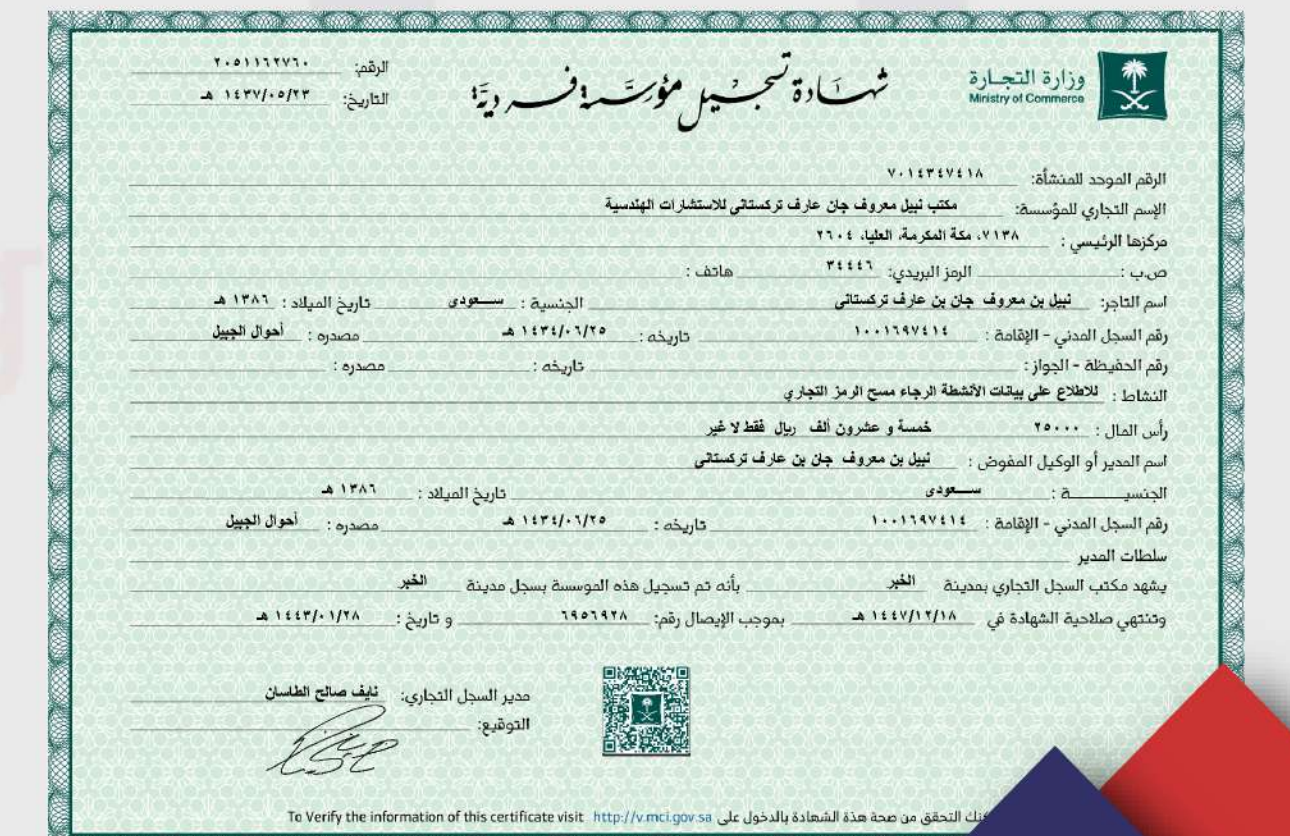 وزارة التجارة
Ministry of Commerce
شهادة تسجيل مؤسسة فردية
الرقم: ٢٠٥١١٦٢٧٦٠
التاريخ: ١٤٣٧/٠٥/٢٣ هـ
الرقم الموحد للمنشأة: ٧٠١٤٣٤٧٤١٨
الإسم التجاري للمؤسسة: مكتب نبيل معروف جان عارف تركستانى للاستشارات الهندسية
مركزها الرئيسي : ٧١٣٨، مكة المكرمة، العليا، ٢٦٠٤
ص.ب : الرمز البريدي: ٣٤٤٤٦ هاتف :
اسم التاجر: نبيل بن معروف جان بن عارف تركستانى الجنسية : سـعودى تاريخ الميلاد : ١٣٨٦ هـ
رقم السجل المدني - الإقامة : ١٠٠١٦٩٧٤١٤ تاريخه : ١٤٣٤/٠٦/٢٥ هـ مصدره : أحوال الجبيل
رقم الحفيظة - الجواز : تاريخه : مصدره :
النشاط : للاطلاع على بيانات الأنشطة الرجاء مسح الرمز التجاري
رأس المال : ٢٥٠٠٠ خمسة و عشرون ألف ريال فقط لا غير
اسم المدير أو الوكيل المفوض : نبيل بن معروف جان بن عارف تركستانى
الجنسيـــــة : سـعودى تاريخ الميلاد : ١٣٨٦ هـ
رقم السجل المدني - الإقامة : ١٠٠١٦٩٧٤١٤ تاريخه : ١٤٣٤/٠٦/٢٥ هـ مصدره : أحوال الجبيل
سلطات المدير
يشهد مكتب السجل التجاري بمدينة الخبر بأنه تم تسجيل هذه الموسسة بسجل مدينة الخبر
وتنتهي صلاحية الشهادة في ١٤٤٧/١٢/١٨ هـ بموجب الإيصال رقم: ٦٩٥٦٩٢٨ و تاريخ : ١٤٤٣/٠١/٢٨ هـ
مدير السجل التجاري: نايف صالح الطاسان
التوقيع:
التحقق من صحة هذة الشهادة بالدخول على To Verify the information of this certificate visit http://v.mci.gov.sa